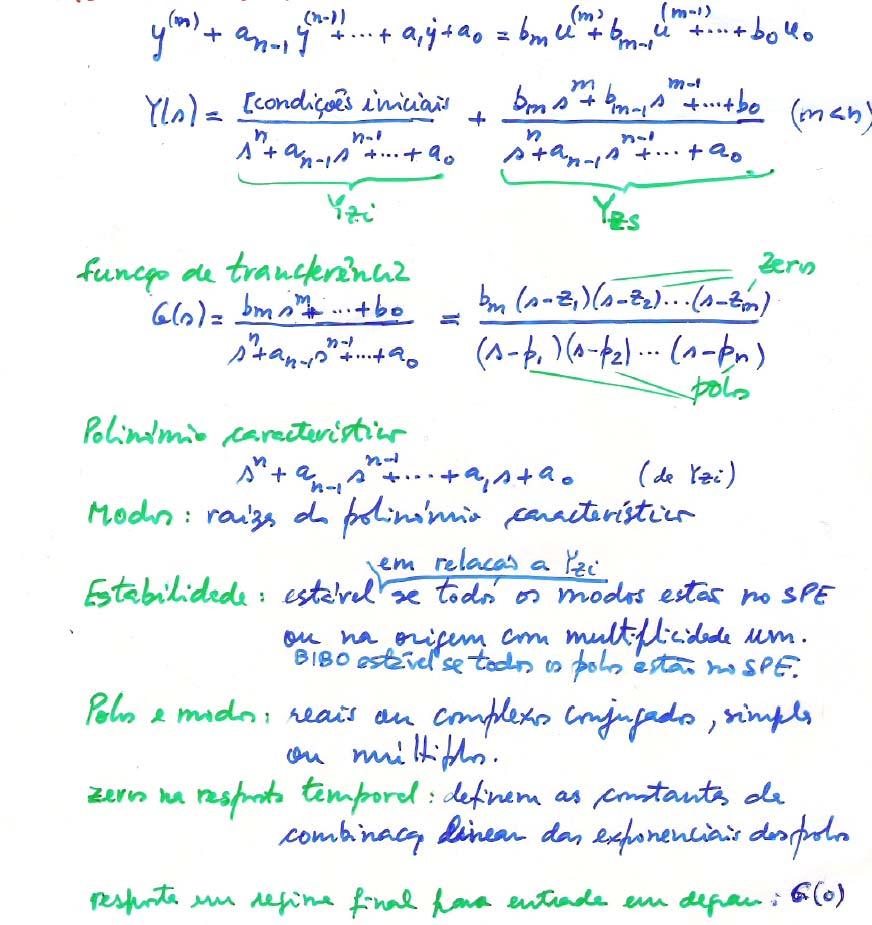 y^(m) + a_{n-1} y^(n-1) + ... + a_1 ẏ + a_0 = b_m u^(m) + b_{m-1} u^(m-1) + ... + b_0 u_0
Y(s) = [condições iniciais / s^n + a_{n-1} s^{n-1} + ... + a_0 + b_m s^m + b_{m-1} s^{m-1} + ... + b_0 / s^n + a_{n-1} s^{n-1} + ... + a_0 (m<n)
Y_zi Y_zs
função de transferência zeros
G(s) = b_m s^m + ... + b_0 / s^n + a_{n-1} s^{n-1} + ... + a_0 = b_m (s-z_1)(s-z_2)...(s-z_m) / (s-p_1)(s-p_2)...(s-p_n)
pólos
Polinómio característico
s^n + a_{n-1} s^{n-1} + ... + a_1 s + a_0 (de Y_zi)
Modos: raízes do polinómio característico
em relação a Y_zi
Estabilidade: estável se todos os modos estão no SPE
ou na origem com multiplicidade um.
BIBO estável se todos os polos estão no SPE.
Polos e modos: reais ou complexos conjugados, simples
ou múltiplos.
zeros na resposta temporal: definem as constantes de
combinação linear das exponenciais dos polos
resposta em regime final para entrada em degrau: G(0)